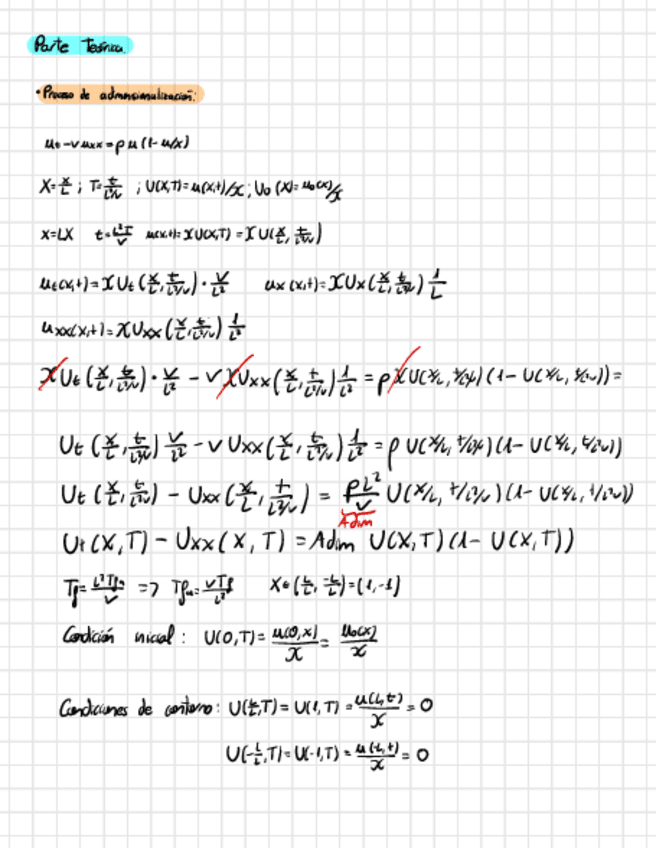 Parte Teórica
• Proceso de adimensionalización:
ut - νuxx = ρu(1 - u/χ)
X = x/L ; T = t/(L²/ν) ; U(X,T) = u(x,t)/χ ; U₀(X) = u₀(x)/χ
x = LX t = L²T/ν u(x,t) = χU(X,T) = χU(x/L, t/(L²/ν))
ut(x,t) = χUt(x/L, t/(L²/ν)) · ν/L² ux(x,t) = χUx(x/L, t/(L²/ν)) 1/L
uxx(x,t) = χUxx(x/L, t/(L²/ν)) 1/L²
χUt(x/L, t/(L²/ν)) · ν/L² - νχUxx(x/L, t/(L²/ν)) 1/L² = ρχU(x/L, t/(L²/ν))(1 - U(x/L, t/(L²/ν))) =
Ut(x/L, t/(L²/ν)) ν/L² - νUxx(x/L, t/(L²/ν)) 1/L² = ρU(x/L, t/(L²/ν))(1 - U(x/L, t/(L²/ν)))
Ut(x/L, t/(L²/ν)) - Uxx(x/L, t/(L²/ν)) = ρL²/ν U(x/L, t/(L²/ν))(1 - U(x/L, t/(L²/ν)))
Adim
Ut(X,T) - Uxx(X,T) = Adim U(X,T)(1 - U(X,T))
Condición inicial: U(0,T) = u(0,x)/χ = u₀(x)/χ
Condiciones de contorno: U(L/L,T) = U(1,T) = u(L,t)/χ = 0
U(-L/L,T) = U(-1,T) = u(-L,t)/χ = 0